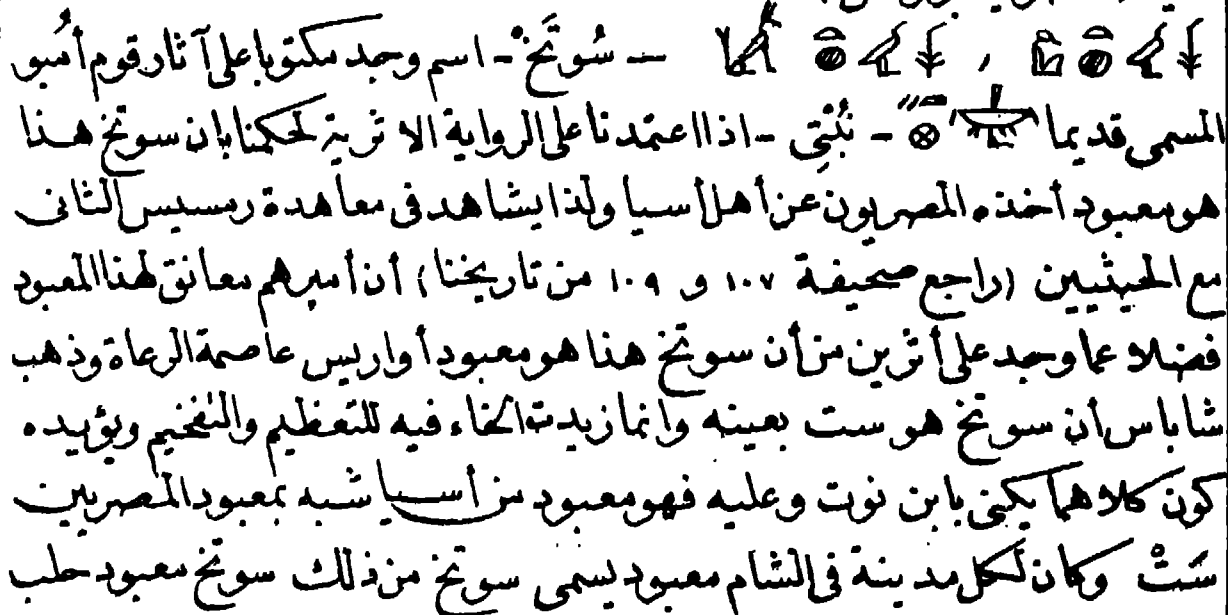 — سُوتَخْ - اسم وجد مكتوبا على آثار قوم أمبو
المسمى قديما - نُبْتِى - اذا اعتمدنا على الرواية الاثرية لحكمنا بان سوتخ هذا
هو معبود أخذه المصريون عن أهل أسيا ولذا يشاهد فى معاهدة رمسيس الثانى
مع الحيثيين (راجع صحيفة ١٠٧ و ١٠٩ من تاريخنا) أن أميرهم معانق لهذا المعبود
فضلا عما وجد على أثرين من أن سوتخ هذا هو معبود أواريس عاصمة الرعاة وذهب
شاباس أن سوتخ هو ست بعينه وانما زيدت الخاء فيه للتعظيم والتفخيم ويؤيده
كون كلاهما يكنى بابن نوت وعليه فهو معبود من أسيا شبه بمعبود المصريين
سَتْ وكان لكل مدينة فى الشام معبود يسمى سوتخ من ذلك سوتخ معبود حلب